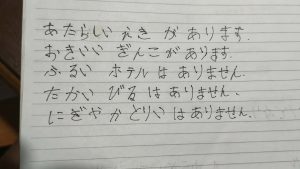 あたらしい えき が あります.
おきいい ぎんこ が あります.
ふるい ホテル は ありません.
たかい びる は ありません.
にぎやか とりい は ありません.